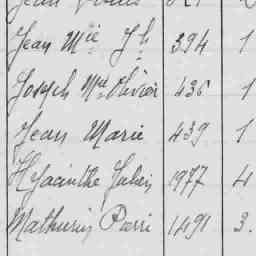 Jean Mie Jh 394 1
Joseph Mie Olivier 436 1
Jean Marie 439 1
Hyacinthe Julien 1977 4
Mathurin Pierri 1491 3.